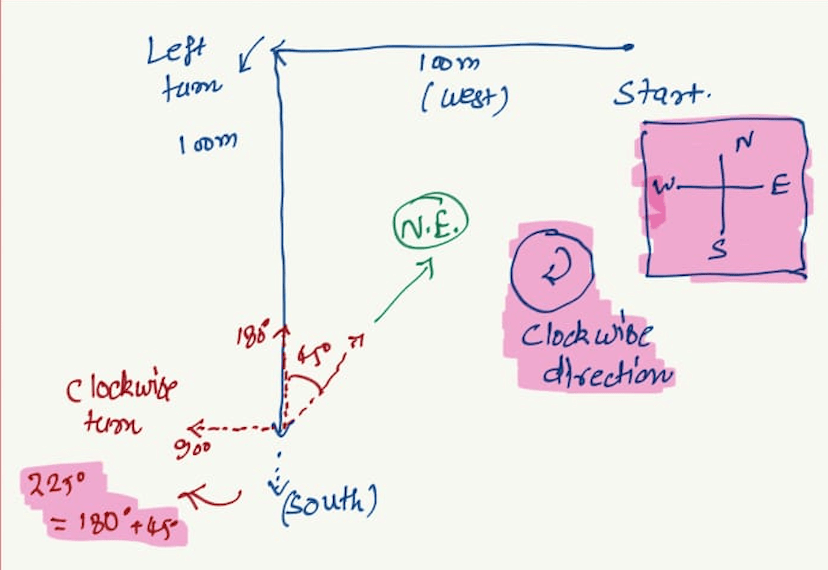 Left
turn
100m
(west)
Start.
100m
N
W
E
S
N.E.
180°
45°
Clockwise
direction
Clockwise
turn
900
225°
= 180° + 45°
(south)